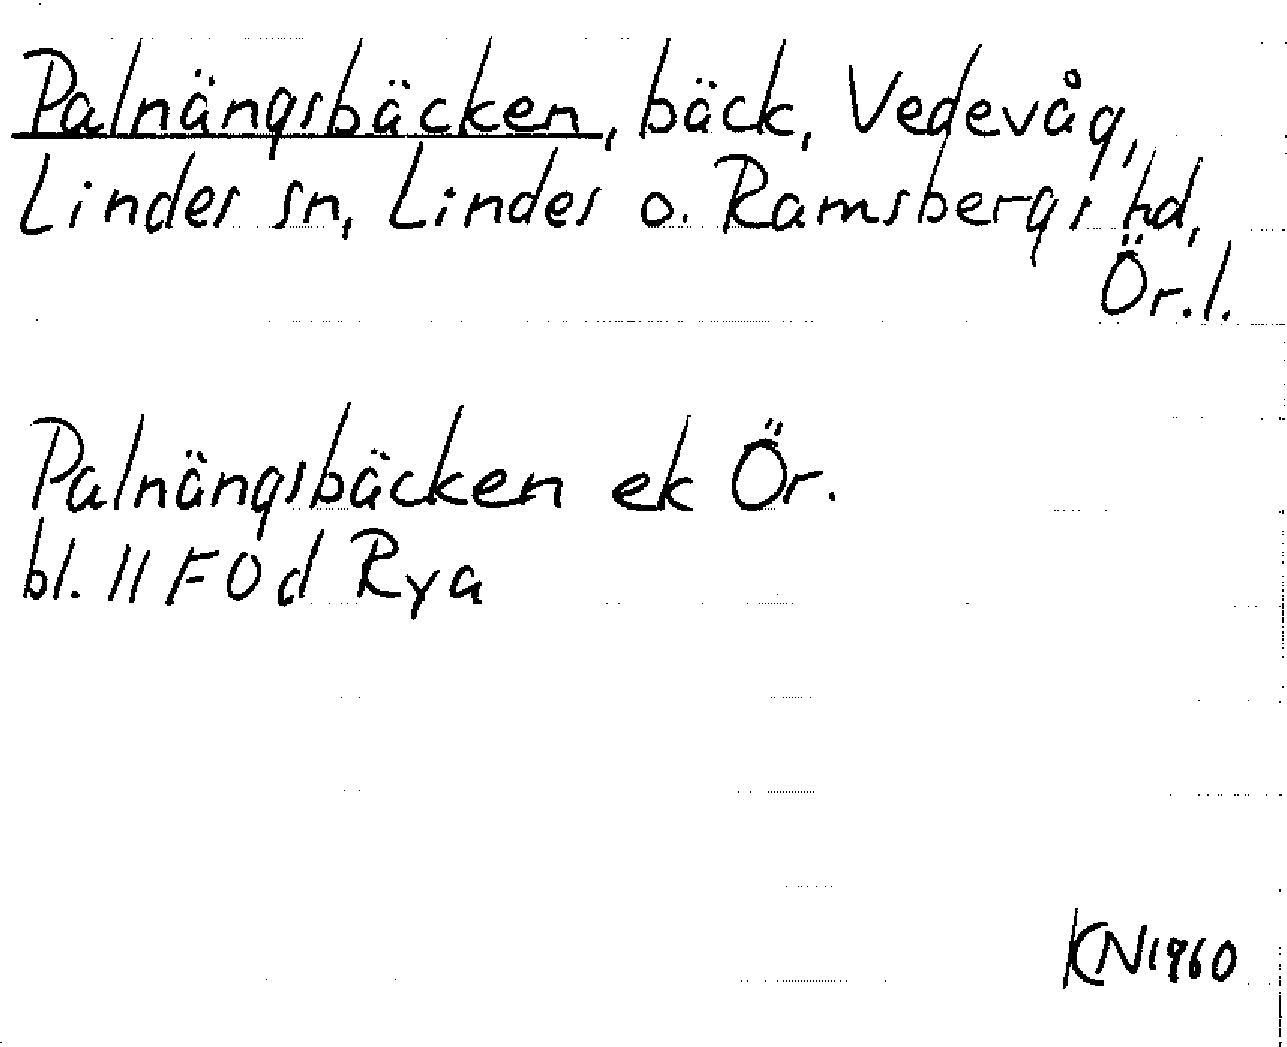 Palnängsbäcken, bäck, Vedevåg,
Lindes sn, Lindes o. Ramsbergs hd,
Ör.l.
Palnängsbäcken ek Ör.
bl. 11 F 0 d Rya
KN 1960